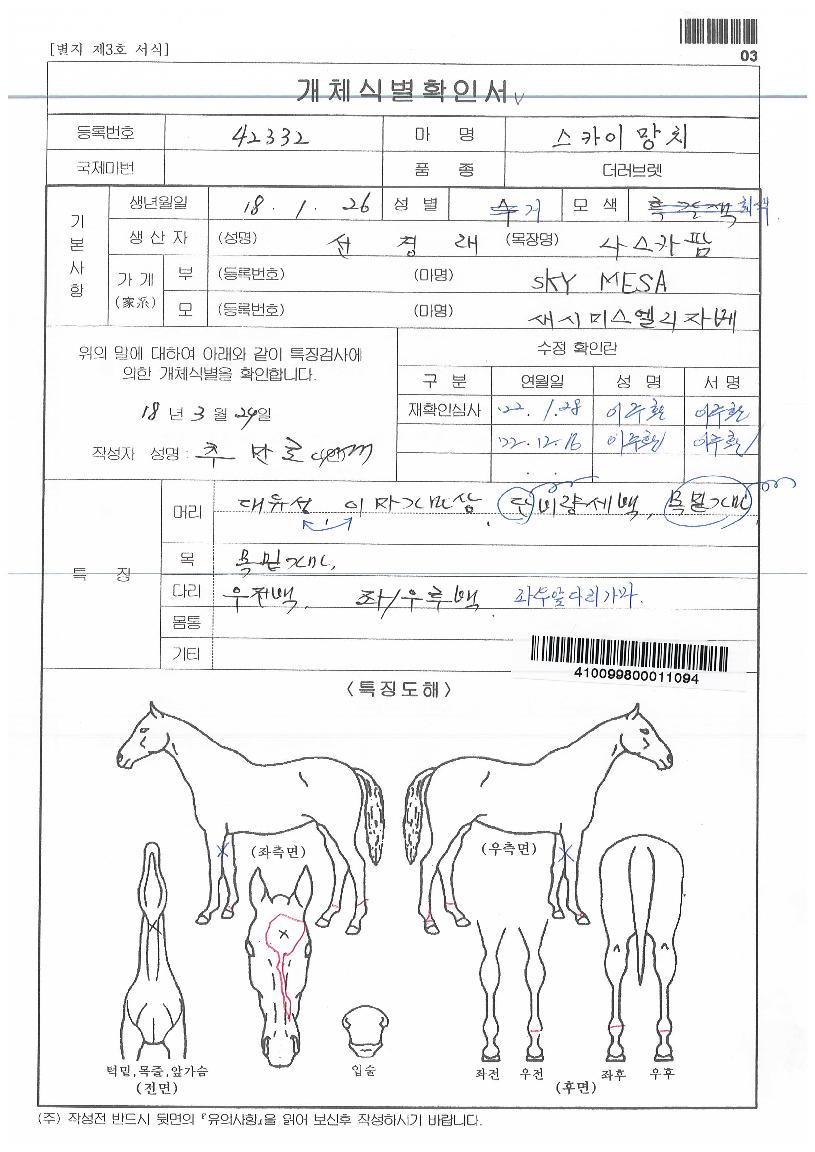 [별지 제3호 서식]
03
개체식별확인서
등록번호 42332 마 명 스카이망치
국제마번 품 종 더러브렛
기본사항
생년월일 18. 1. 26 성 별 수 거 모 색 흑갈색 회색
생 산 자 (성명) 선 경 래 (목장명) 나스카팜
가 계 (家系) 부 (등록번호) (마명) SKY MESA
모 (등록번호) (마명) 새시미스엘리자베
위의 말에 대하여 아래와 같이 특징검사에
의한 개체식별을 확인합니다.
18 년 3 월 24일
작성자 성명 :
수정 확인란
구 분 연월일 성 명 서 명
재확인심사 '22. 1. 28 이주환 이주환
'22. 12. 16 이주환 이주환
특 징
머리 대유성, 이마가마상, 단비량세백, 목밑가마
목 목밑가마,
다리 우전백, 좌/우후백 좌우앞다리가마.
몸통
기타
410099800011094
<특징도해>
(좌측면) (우측면)
턱밑,목줄,앞가슴
(전면)
입술
좌전 우전 좌후 우후
(후면)
(주) 작성전 반드시 뒷면의 『유의사항』을 읽어 보신후 작성하시기 바랍니다.